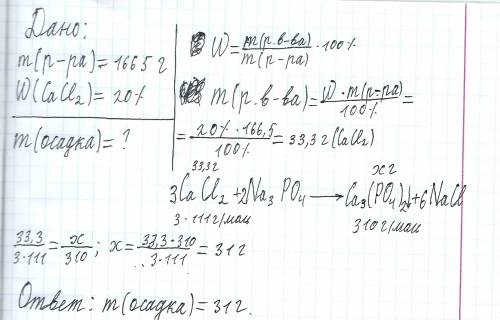 Дано:
m(р-ра)= 166,5 г
W(CaCl2)= 20%
m(осадка)= ?
W= m(р.в-ва)/m(р-ра) · 100%
m(р.в-ва)= W · m(р-ра)/100% =
= 20% · 166,5/100% = 33,3 г (CaCl2)
33,3г xг
3CaCl2 + 2Na3PO4 → Ca3(PO4)2↓ + 6NaCl
3·111г/мол 310г/мол
33,3/3·111 = x/310; x= 33,3·310/3·111 = 31г
Ответ: m(осадка)= 31г.